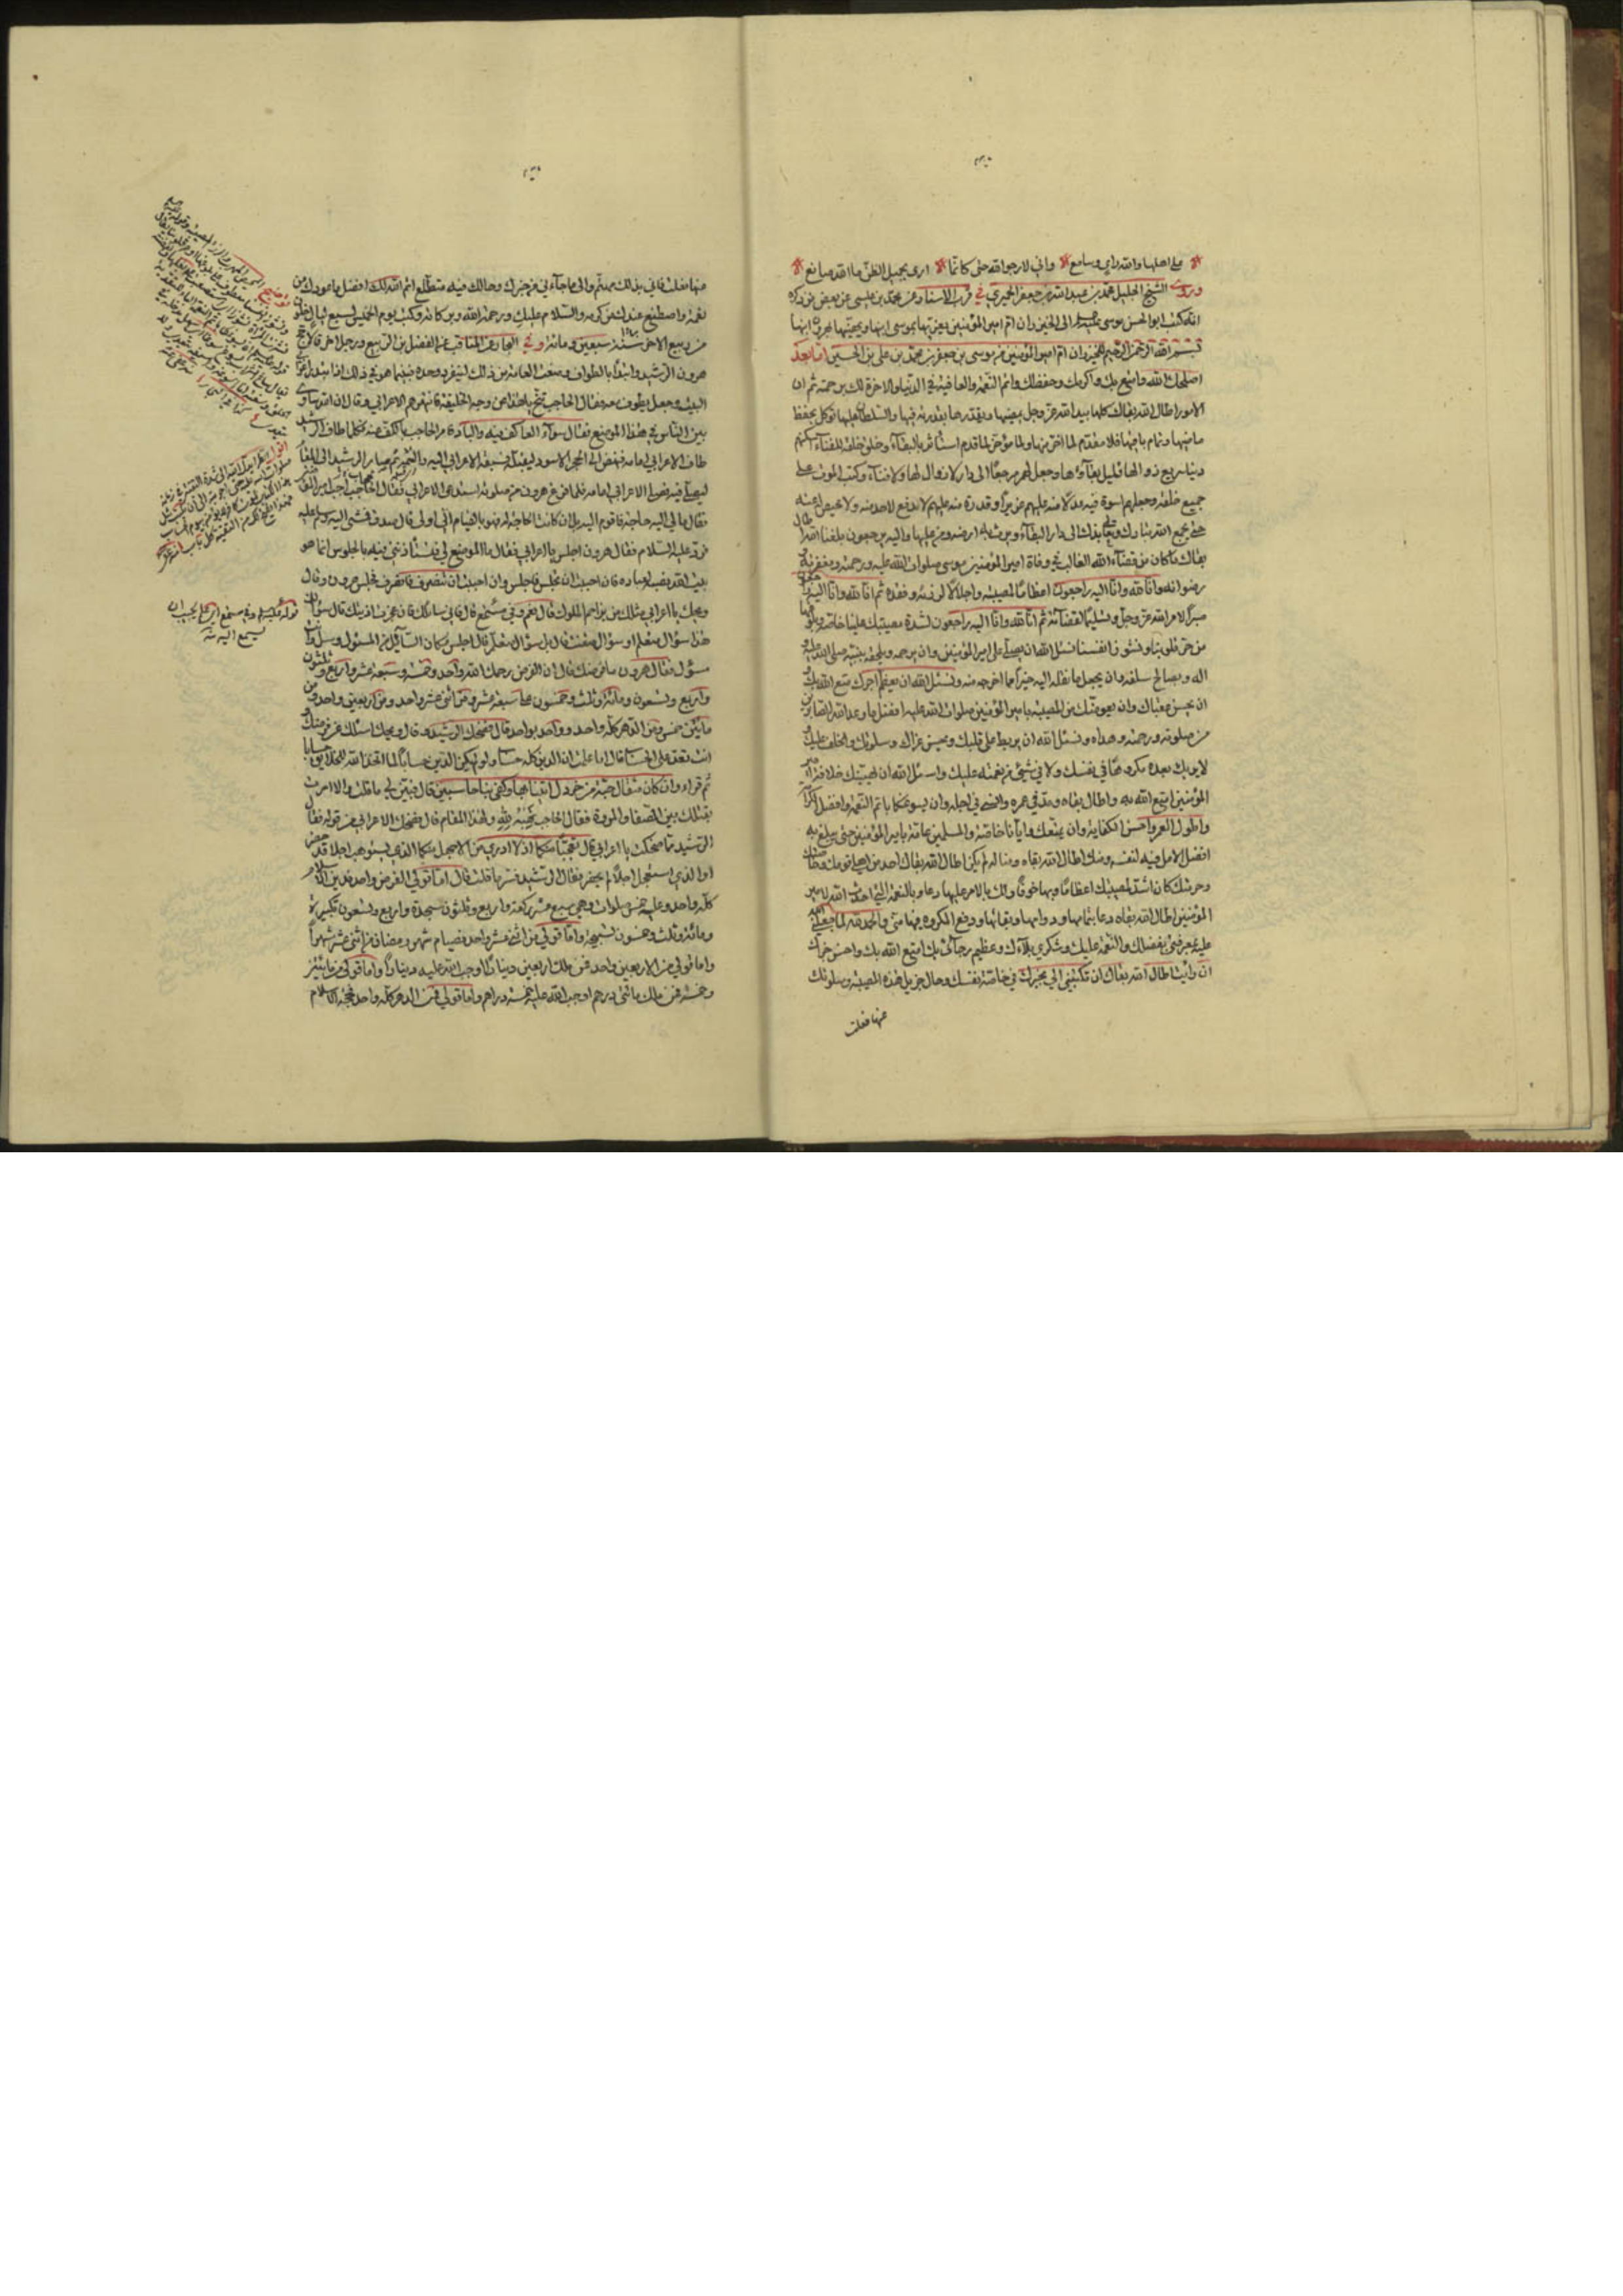 على اهلها والله راي وسامع * واني لارجو الله حتى كانما * ارى بجميل الظن ما الله صانع *
وروى الشيخ الجليل محمد بن عبد الله بن جعفر الحميري في قرب الاسناد عن محمد بن عيسى عن بعض من ذكره
انه كتب ابو الحسن موسى الى الخيزران ام امير المؤمنين يعزيها بموسى ابنها ويهنيها بهرون ابنها
بسم الله الرحمن الرحيم للخيزران ام امير المؤمنين من موسى بن جعفر بن محمد بن علي بن الحسين اما بعد
اصلحك الله وامتع بك واكرمك وحفظك واتم النعمة والعافية في الدنيا والاخرة لك برحمته ثم ان
الامور اطال الله بقاك كلها بيد الله عز وجل يمضيها ويقدرها بقدرته فيها والسلطان عليها توكل بحفظ
ماضيها وتمام باقيها فلا مقدم لما اخر منها ولا مؤخر لما قدم استاثر بالبقاء وخلق خلقه للفناء اسكنهم
دنيا سريع زوالها قليل بقاؤها وجعل لهم مرجعا الى دار لا زوال لها ولا فناء وكتب الموت على
جميع خلقه وجعلهم اسوة فيه عدلا منه عليهم عزيزا وقدرة منه عليهم لا مدفع لاحد منه ولا محيص له عنه
حتى يجمع الله تبارك وتعالى بذلك الى دار البقاء ويرث به ارضه ومن عليها واليه يرجعون بلغنا اطال الله
بقاك ما كان من قضاء الله الغالب في وفاة امير المؤمنين موسى صلوات الله عليه ورحمته ومغفرته
رضوانه وانا لله وانا اليه راجعون اعظاما لمصيبته واجلالا لرزئه وفقده ثم انا لله وانا اليه
صبرا لامر الله عز وجل وتسليما لقضائه ثم انا لله وانا اليه راجعون لشدة مصيبتك علينا خاصة
من حر قلوبنا ونشوز انفسنا نسئل الله ان يصلي على امير المؤمنين وان يرحمه ويلحقه بنبيه صلى الله عليه
اله وبصالح سلفه وان يجعل ما نقله اليه خيرا مما اخرجه منه ونسئل الله ان يعظم اجرك امتع الله بك
ان يحسن عقباك وان يعوضك من المصيبة بامير المؤمنين صلوات الله عليه افضل ما وعد الله الصابرين
من صلوته ورحمته وهداه ونسئل الله ان يربط على قلبك ويحسن عزاك وسلوتك والخلف عليك
لا يريك بعده مكروها في نفسك ولا في شيء من نعمته عليك واسئل الله ان يهنيك خلافة امير
المؤمنين امتع الله به واطال بقاه ومد في عمره وانسا في اجله وان يسوغكما باتم النعمة وافضل الكرامة
واطول العمر واحسن الكفاية وان يمتعك وايانا خاصة والمسلمين عامة بامير المؤمنين حتى يبلغ به
افضل الامل فيه لنفسه ومنك اطال الله بقاه ومنا له لم يكن اطال الله بقاك احد من اهلي وقومك وخاصتك
وحرمتك كان اشد لمصيبتك اعظاما وبها حزنا ولك بالاجر عليها دعاء وبالنعمة التي احدث الله لامير
المؤمنين اطال الله بقاه دعا بتمامها ودوامها وبقائها ودفع المكروه فيها مني والحمد لله لما جعلني الله
عليه بمعرفتي بفضلك والنعمة عليك وشكري بلاءك وعظيم رجائي بك امتع الله بك واحسن جزاك
ان رايت اطال الله بقاك ان تكتبي الي بخبرك في خاصة نفسك وحال جزيل هذه المصيبة وسلوتك
عنها فعلت
عنها فعلت فاني بذلك مهتم والى ما جاءني من خبرك وحالك فيه متطلع اتم الله لك افضل ما عودك من
نعمه واصطنع عندك من كرامته والسلام عليك ورحمة الله وبركاته وكتب يوم الخميس لسبع ليال خلون
من ربيع الاخر سنة سبعين ومائة وفي البحار عن المناقب عن الفضل بن الربيع ورجل اخر قالا حج
هرون الرشيد وابتدا بالطواف ومنعت العامة من ذلك لينفرد وحده فبينما هو في ذلك اذ ابتدر اعرابي
البيت وجعل يطوف معه فقال الحاجب تنح يا هذا عن وجه الخليفة فانتهرهم الاعرابي وقال ان الله ساوى
بين الناس في هذا الموضع فقال سواء العاكف فيه والباد فامر الحاجب بالكف عنه فكلما طاف الرشيد
طاف الاعرابي امامه فنهض الى الحجر الاسود ليقبله فسبقه الاعرابي اليه والتثمه ثم صار الرشيد الى المقام
ليصلي فيه فصلى الاعرابي امامه فلما فرغ هرون من صلوته استدعى الاعرابي فقال الحاجب اجب امير المؤمنين
فقال ما لي اليه حاجة فاقوم اليه بل ان كانت الحاجة له فهو بالقيام الي اولى قال صدق فمشى اليه وسلم عليه
فرد عليه السلام فقال هرون اجلس يا اعرابي فقال ما الموضع لي فتستاذنني فيه بالجلوس انما هو
بيت الله نصبه لعباده فان احببت ان تجلس فاجلس وان احببت ان تنصرف فانصرف فجلس هرون وقال
ويحك يا اعرابي مثلك من يزاحم الملوك قال نعم وفي مستمع قال فاني سائلك فان عجزت اذيتك قال سؤالك
هذا سؤال متعلم او سؤال متعنت قال بل سؤال متعلم قال اجلس مكان السائل من المسئول وسل وانت
مسؤل فقال هرون ما فرضك قال ان الفرض رحمك الله واحد وخمسة وسبعة عشر واربع وثلثون
واربع وتسعون ومائة وثلث وخمسون على سبعة عشر ومن اثني عشر واحد ومن اربعين واحد ومن
مائتين خمس ومن الدهر كله واحد وواحد بواحد قال فضحك الرشيد وقال ويحك اسئلك عن فرضك
انت تعد علي الحساب قال اما علمت ان الدين كله حساب ولو لم يكن الدين حسابا لما اتخذ الله للخلايق حسابا
ثم قراء وان كان مثقال حبة من خردل اتينا بها وكفى بنا حاسبين قال فبين لي ما قلت والا امرت
بقتلك بين الصفا والمروة فقال الحاجب تهبه لله ولهذا المقام قال فضحك الاعرابي من قوله فقال
الرشيد مما ضحكت يا اعرابي قال تعجبا منكما اذ لا ادري من الاجهل منكما الذي يستوهب اجلا قد حضر
او الذي استعجل اجلا لم يحضر فقال الرشيد فسر ما قلت قال اما قولي الفرض واحد فدين الاسلام
كله واحد وعليه خمس صلوات وهي سبع عشر ركعة واربع وثلثون سجدة واربع وتسعون تكبيرة
ومائة وثلث وخمسون تسبيحة واما قولي من اثني عشر واحد فصيام شهر رمضان من اثني عشر شهرا
واما قولي من الاربعين واحد فمن ملك اربعين دينارا اوجب الله عليه دينارا واما قولي من مائتين
وخمسة فمن ملك مائتي درهم اوجب الله عليه خمسة دراهم واما قولي فمن الدهر كله واحد فحجة الاسلام
قوله وفي مستمع اي علي يجب ان
يستمع اليه